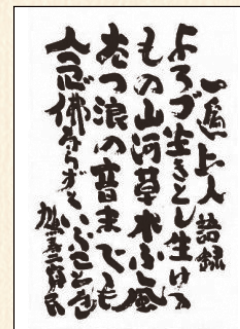 一遍上人語録
よろづ生きとし生ける
もの山河草木ふく風
たつ浪の音までも
念佛ならずといふことな